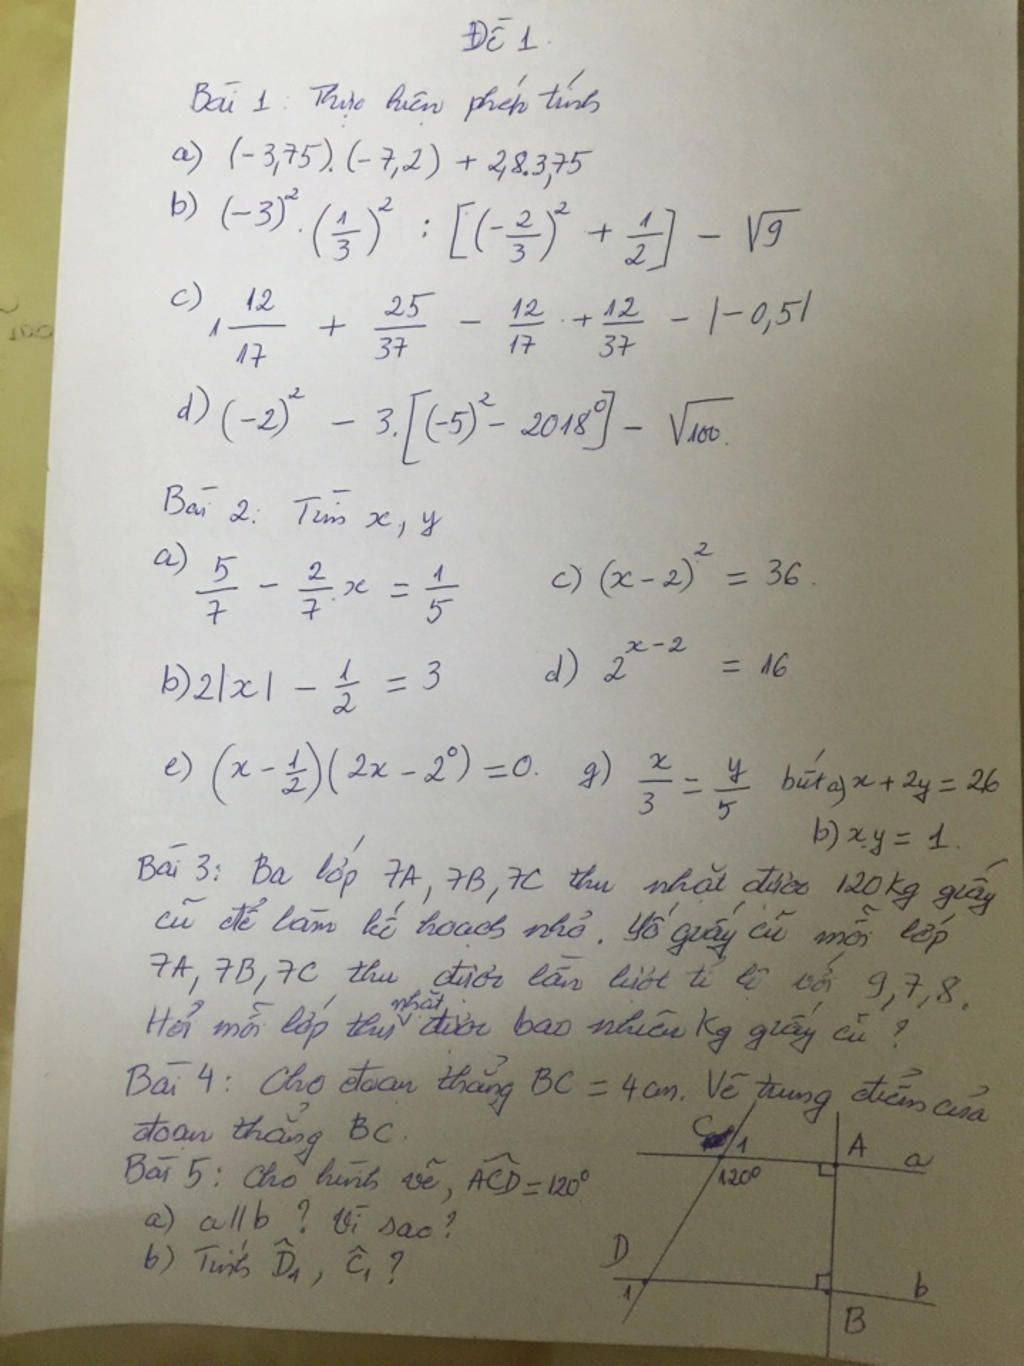 ĐỀ 1.
Bài 1: Thực hiện phép tính
a) (-3,75).(-7,2) + 2,8.3,75
b) (-3)² . (1/3)² : [(-2/3)² + 1/2] - √9
c) 1 12/17 + 25/37 - 12/17 + 12/37 - |-0,5|
d) (-2)² - 3.[(-5)² - 2018⁰] - √100.
Bài 2: Tìm x, y
a) 5/7 - 2/7.x = 1/5 c) (x-2)² = 36.
b) 2|x| - 1/2 = 3 d) 2^(x-2) = 16
e) (x - 1/2)(2x - 2⁰) = 0. g) x/3 = y/5 biết a) x + 2y = 26
b) x.y = 1.
Bài 3: Ba lớp 7A, 7B, 7C thu nhặt được 120kg giấy
cũ để làm kế hoạch nhỏ. Số giấy cũ mỗi lớp
7A, 7B, 7C thu được lần lượt tỉ lệ với 9, 7, 8.
Hỏi mỗi lớp thu nhặt được bao nhiêu kg giấy cũ?
Bài 4: Cho đoạn thẳng BC = 4cm. Vẽ trung điểm của
đoạn thẳng BC.
Bài 5: Cho hình vẽ, ACD = 120°
a) a//b? Vì sao?
b) Tính D̂₁, Ĉ₁?
C 1 A a
120°
D
1 b
B